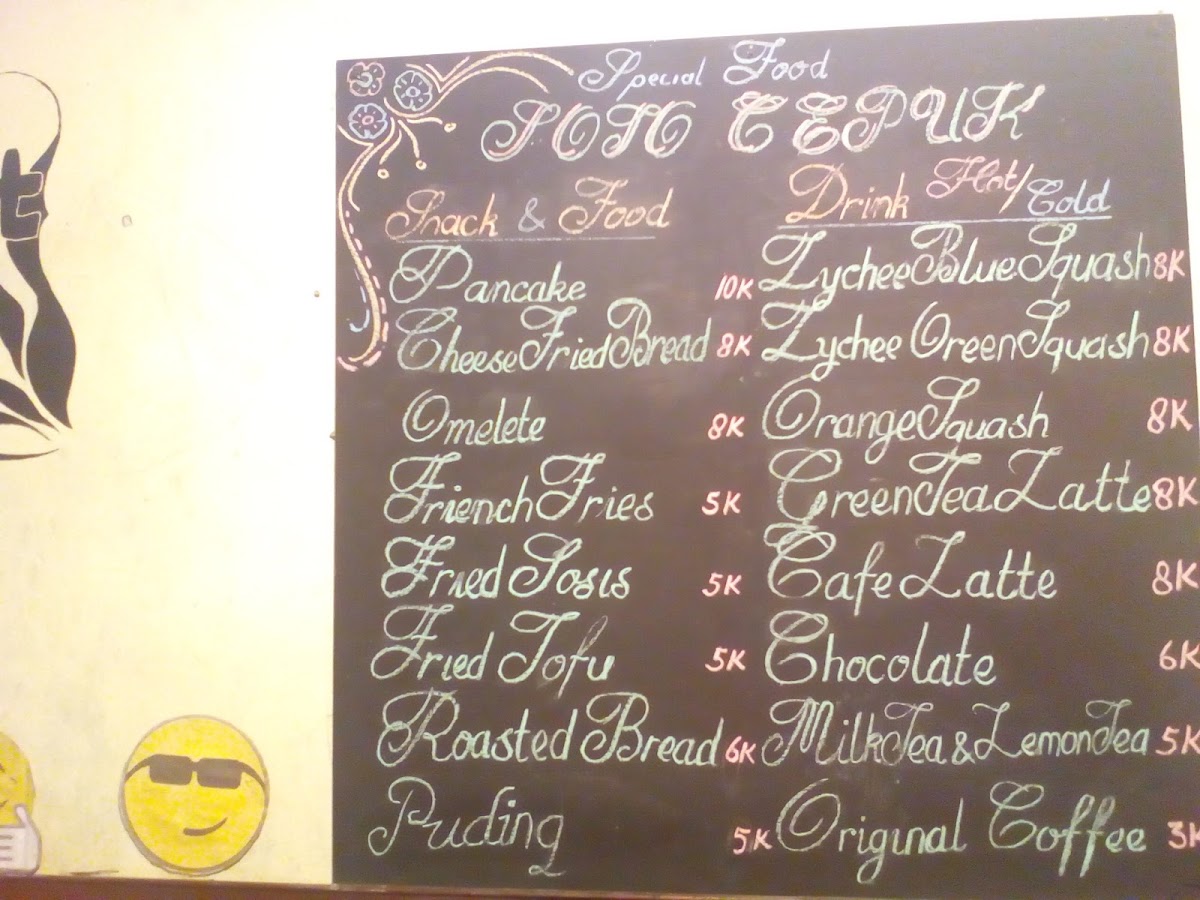 Special Food
SOTO CEPUK
Snack & Food
Pancake 10K
Cheese Fried Bread 8K
Omelete 8K
Friench Fries 5K
Fried Sosis 5K
Fried Tofu 5K
Roasted Bread 6K
Puding 5K
Drink Hot/Cold
Lychee Blue Squash 8K
Lychee Green Squash 8K
Orange Squash 8K
Green Tea Latte 8K
Cafe Latte 8K
Chocolate 6K
Milk Tea & Lemon Tea 5K
Original Coffee 3K